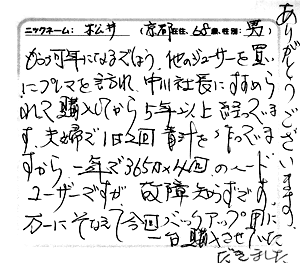 ニックネーム: 松井 (京都在住、68歳、性別: 男)
もう何年になるでしょう、他のジューサーを買い
にプレマを訪れ、中川社長にすすめら
れて購入してから5年以上経っていま
す。夫婦で1日2回青汁を作っていま
すから、一年で365日×4回のヘビー
ユーザーですが、故障知らずです。
万一にそなえて今回バックアップ用に
一台購入させていた
だきました。
ありがとうございます。